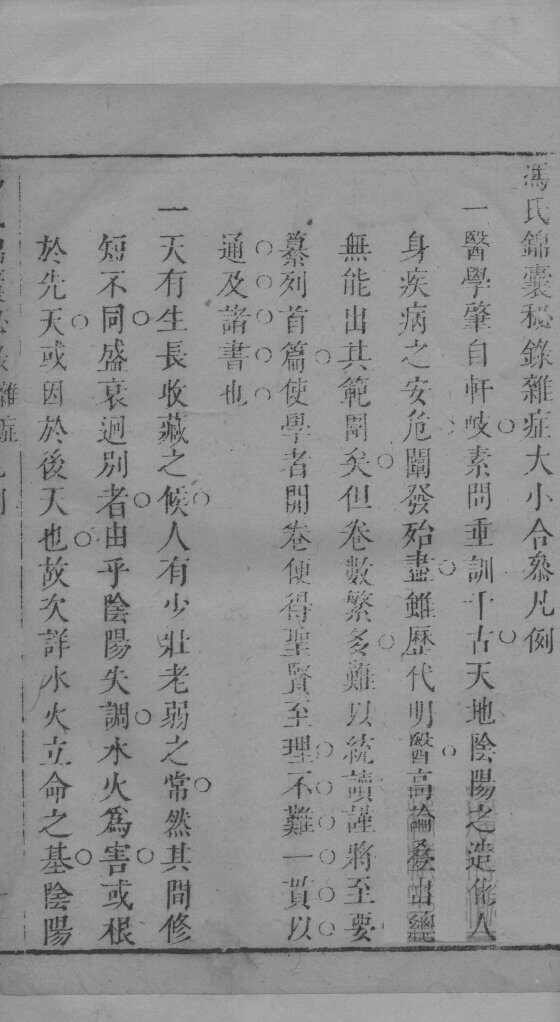 馮氏錦囊秘錄雜症大小合叅凡例
一醫學肇自軒岐素問垂訓千古天地陰陽之造化人
身疾病之安危闡發殆盡雖歷代明醫高論叠出總
無能出其範圍矣但卷數繁多難以統讀謹將至要
纂列首篇使學者開卷便得聖賢至理不難一貫以
通及諸書也
一天有生長收藏之候人有少壯老弱之常然其間修
短不同盛衰迥別者由乎陰陽失調水火為害或根
於先天或因於後天也故次詳水火立命之基陰陽